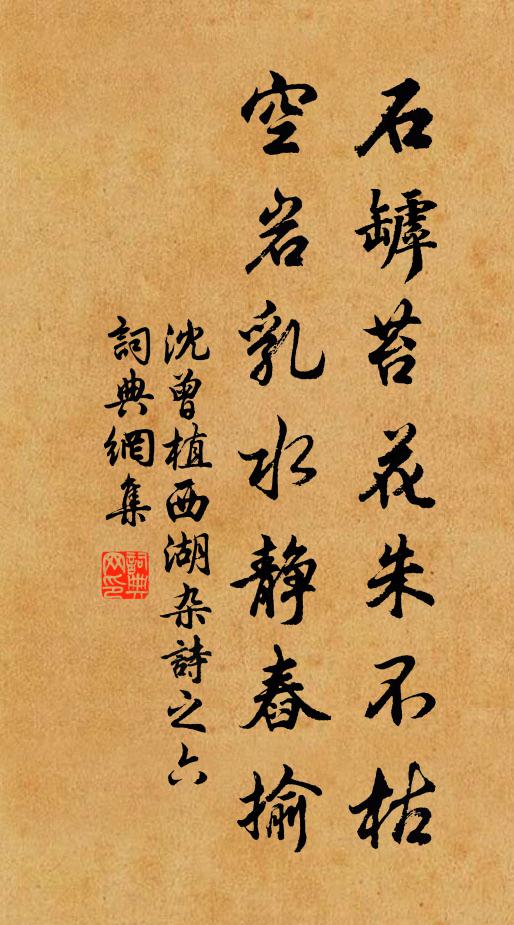 石罅苔花朱不枯
空岩乳水静舂揄
沈曾植西湖杂詩之六
詞典網集
詞典网印